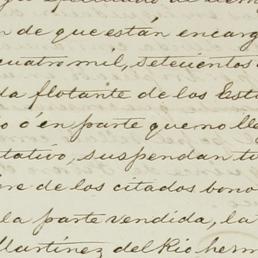 n de que están encarg
cuatro mil, setecientos
da flotante de los Est
o ó en parte que no lle
tativo, suspendan to
re de los citados bono
la parte vendida, la
Martínez del Rio herm